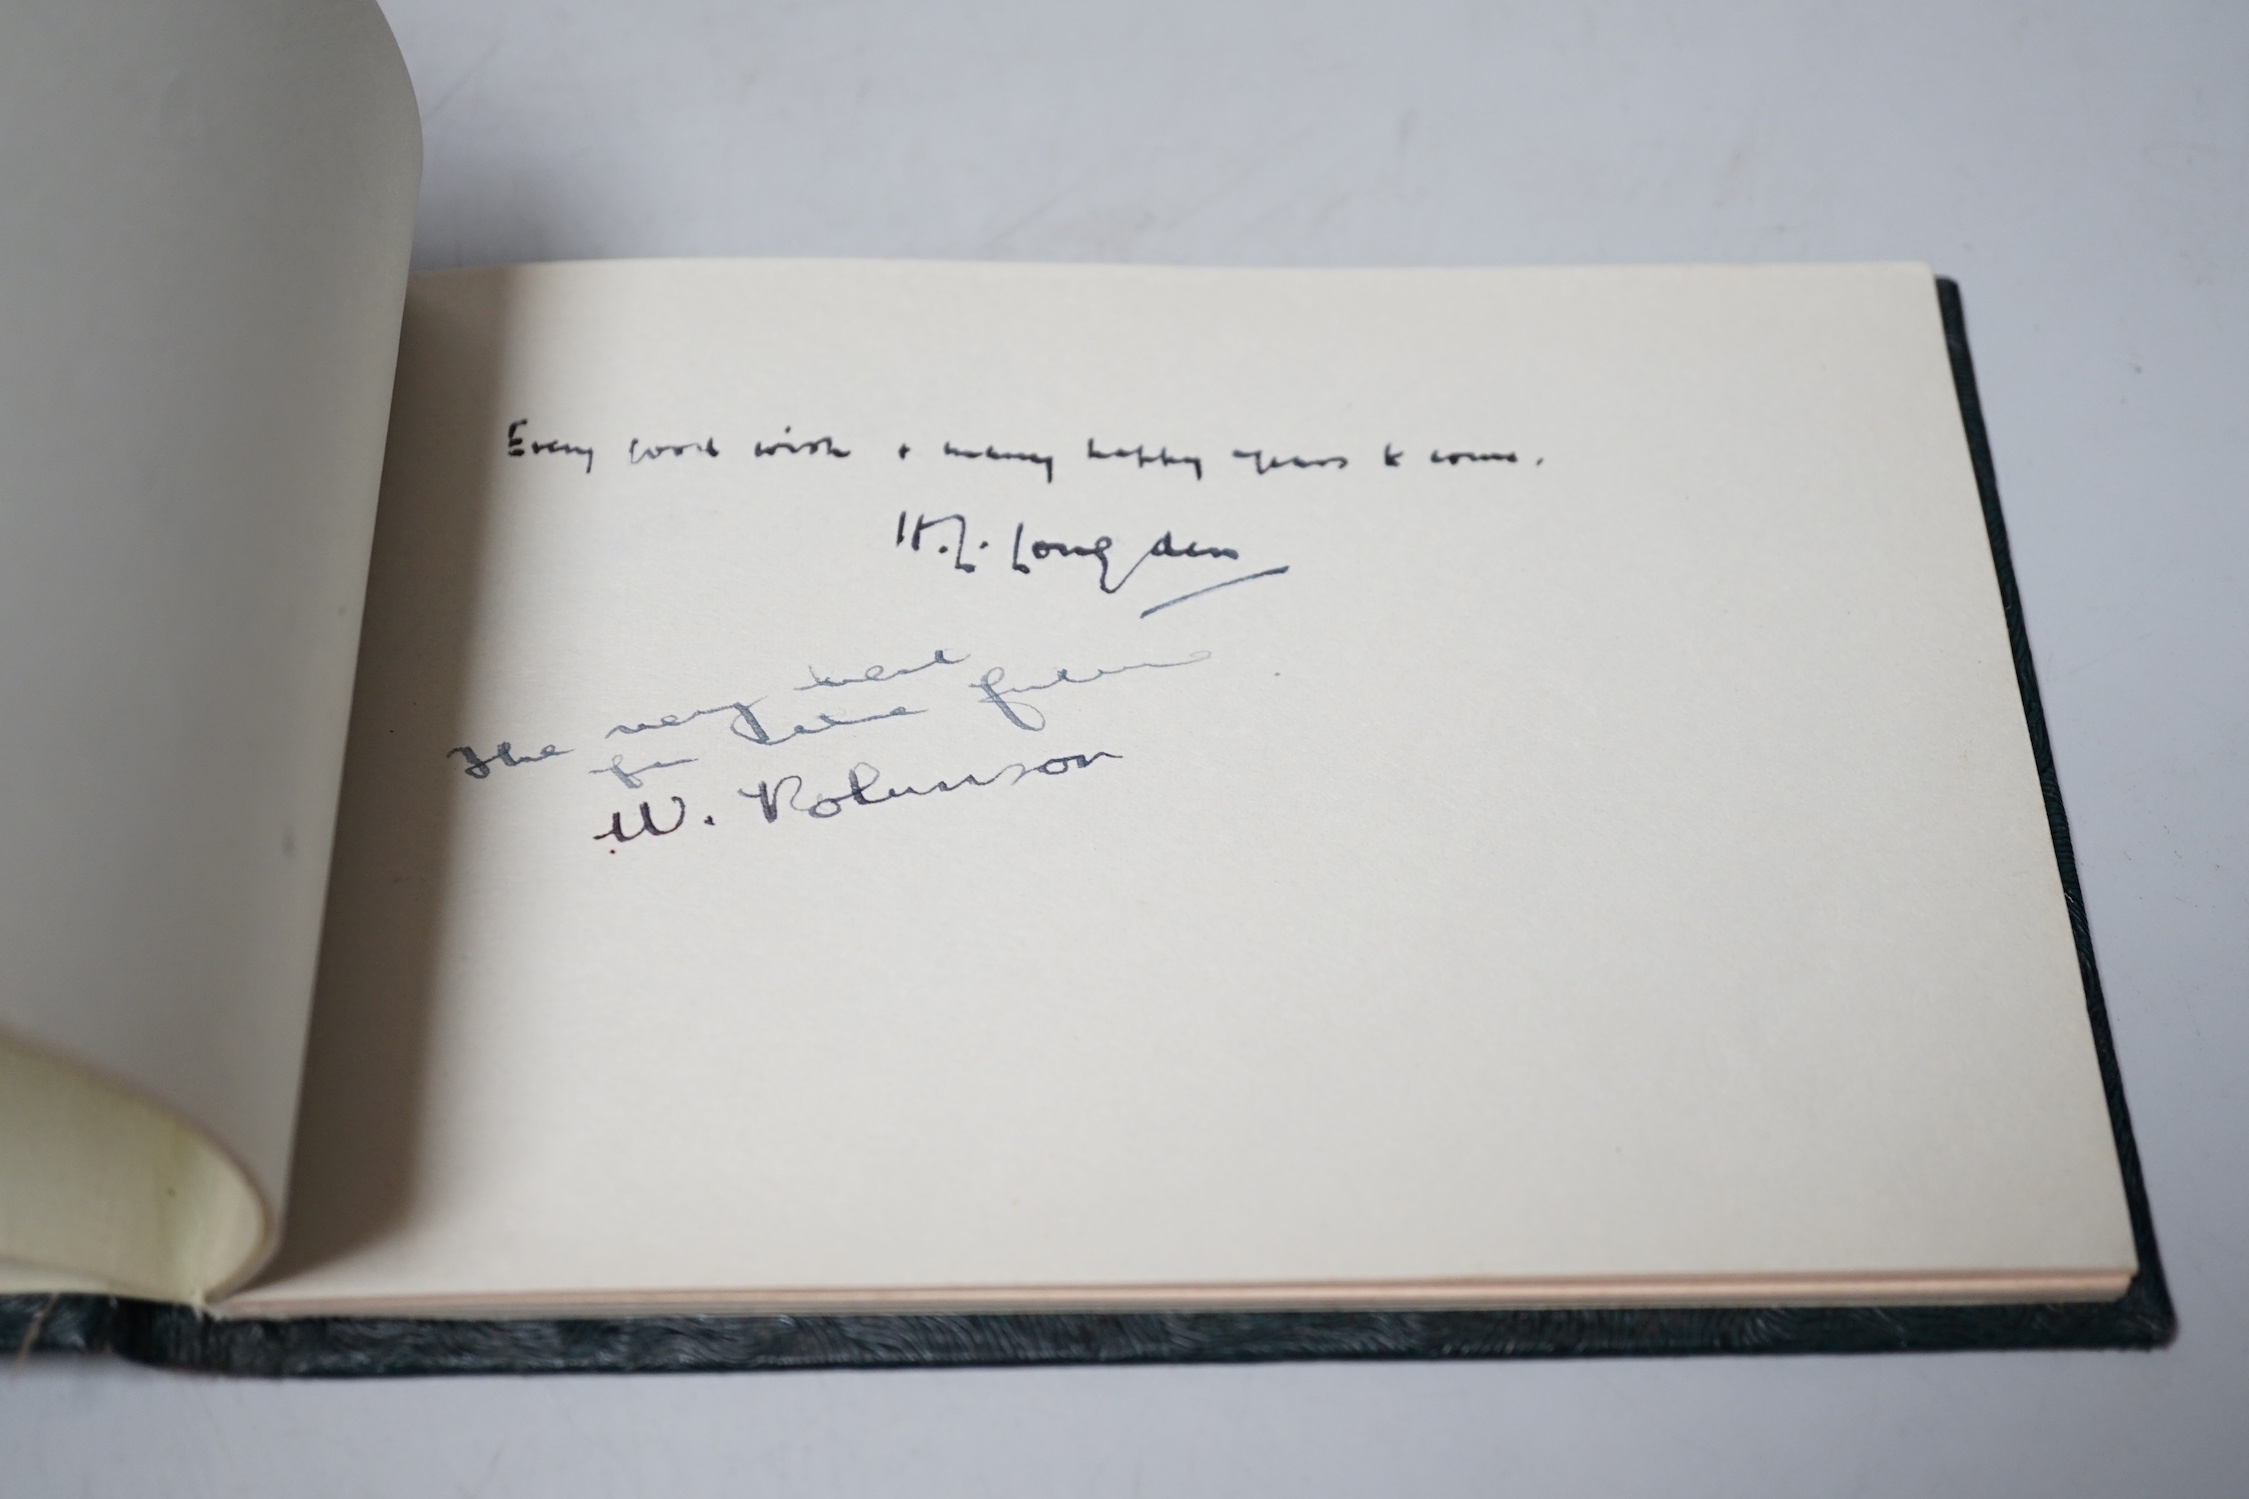 Every good wish + many happy years to come.
H.J. Longden
The very best
for the future
W. Robinson